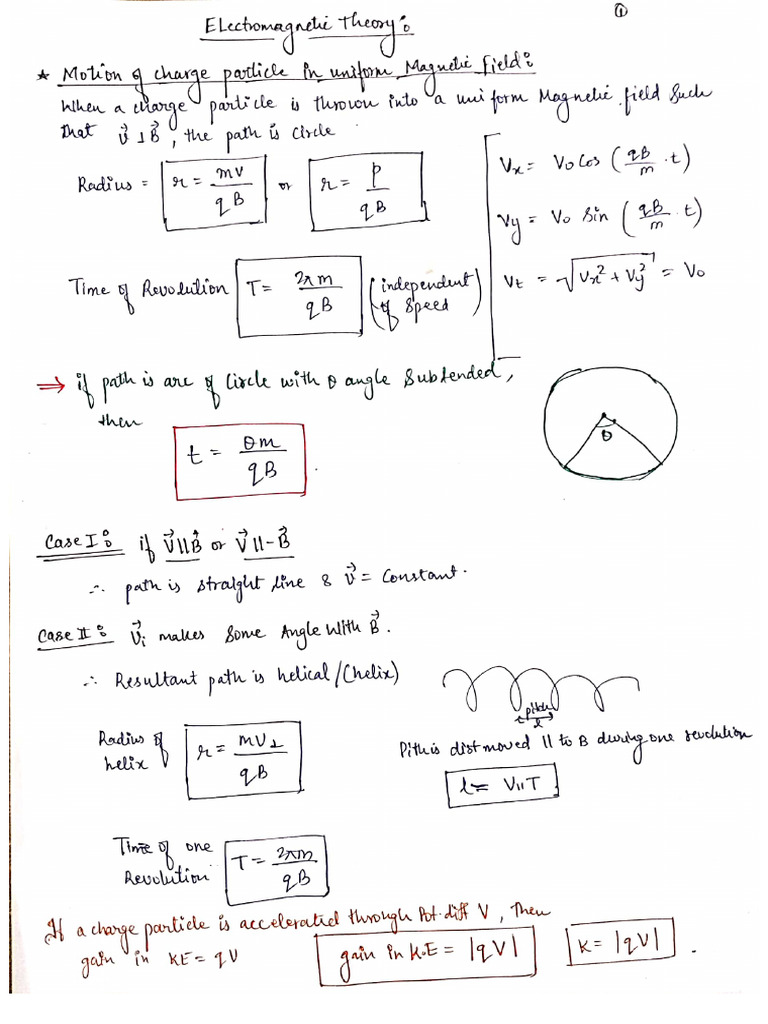 ①
Electromagnetic Theory:
* Motion of charge particle in uniform Magnetic field:
When a charge particle is thrown into a uniform Magnetic field such
that v⃗ ⊥ B⃗, the path is circle
Radius = r = mv/qB or r = p/qB
Vx = V0 cos (qB/m · t)
Vy = V0 sin (qB/m · t)
Vt = √(Vx² + Vy²) = V0
Time of Revolution T = 2πm/qB (independent of speed)
⇒ if path is arc of circle with θ angle subtended,
then
t = θm/qB
θ
Case I: if V⃗ || B⃗ or V⃗ || -B⃗
∴ path is straight line & v⃗ = constant.
Case II: V⃗i makes some Angle with B⃗.
∴ Resultant path is helical/(helix)
pitch
l
Radius of helix r = mV⊥/qB
Pith is dist moved || to B during one revolution
l = V||T
Time of one Revolution T = 2πm/qB
If a charge particle is accelerated through Pot. diff V, Then
gain in KE = qV gain in K.E = |qV| K = |qV| .